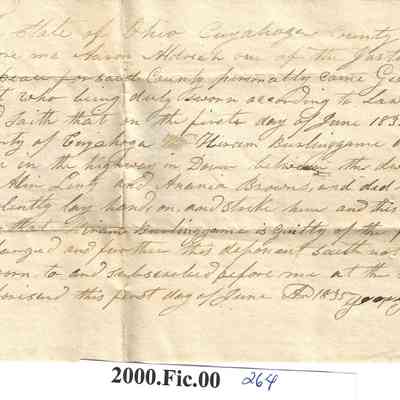 State of Ohio Cuyahoga County
me Aaron Aldrich one of the Justi
peace for said County personally came Geo
who being duly sworn according to Law
saith that on the first day of June 183
of Cuyahoga Hiram Burlinggame
in the highway in Dover between the dw
Alin Lent and Anania Browns, and did
lently lay hand on, and stroke him and this
that Hiram Burlinggame is guilty of the
charged and further this deponent saith not
orn to and subscribed before me at the
this first day of June AD 1835
2000.Fic.00 264